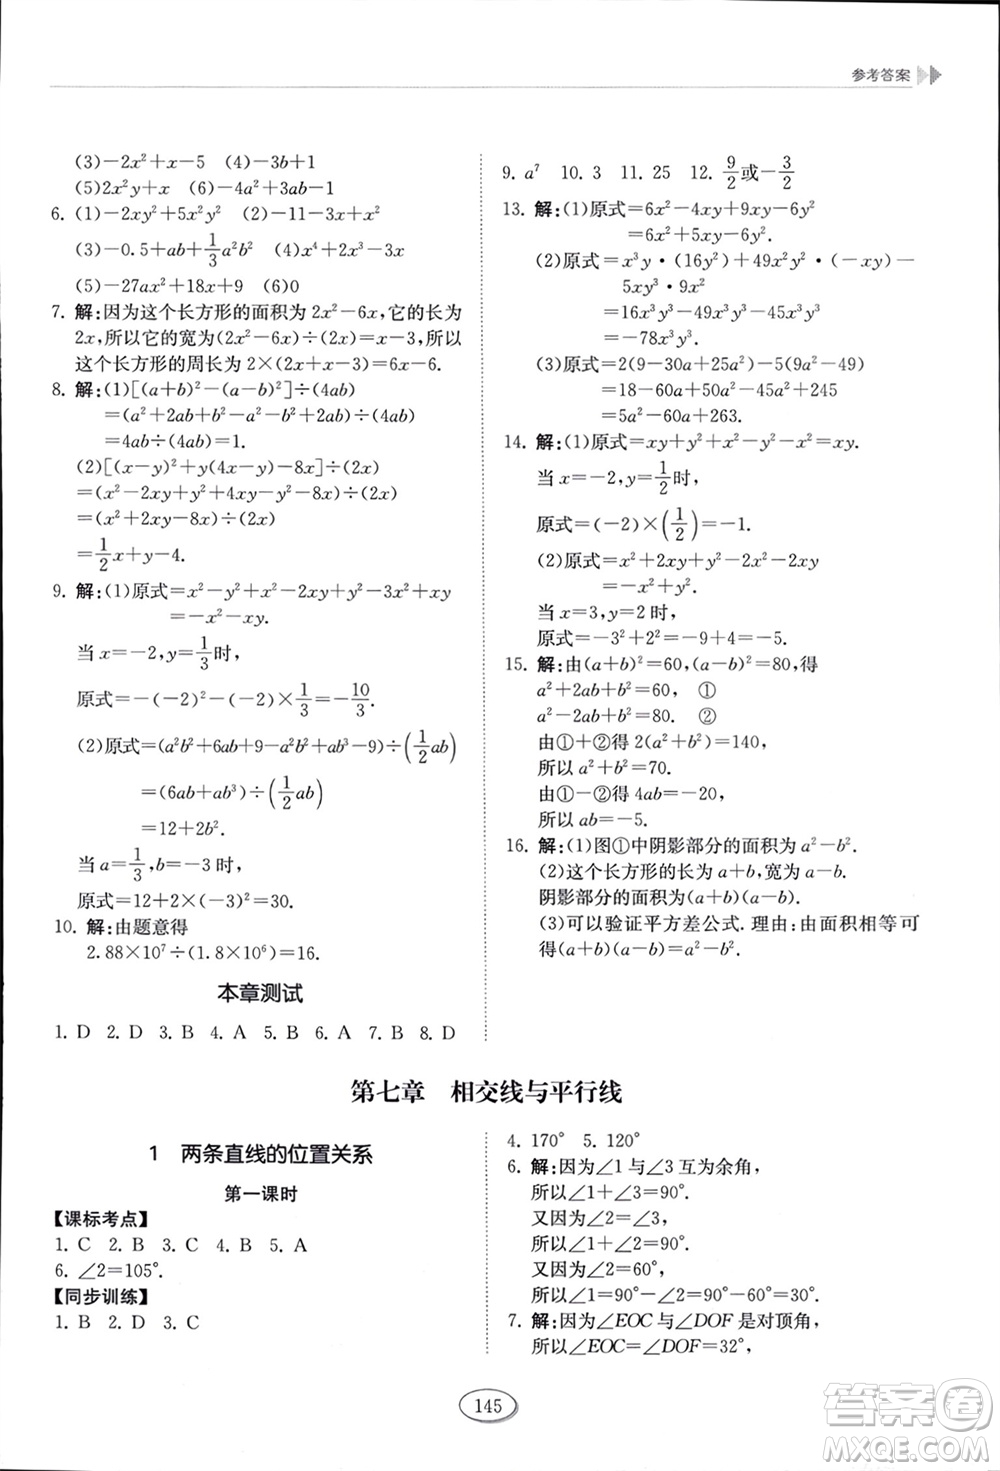 参考答案
(3)－2x²＋x－5　(4)－3b＋1
(5)2x²y＋x　(6)－4a²＋3ab－1
6. (1)－2xy²＋5x²y²　(2)－11－3x＋x²
(3)－0.5＋ab＋1/3a²b²　(4)x⁴＋2x³－3x
(5)－27ax²＋18x＋9　(6)0
7. 解:因为这个长方形的面积为 2x²－6x,它的长为
2x,所以它的宽为(2x²－6x)÷(2x)＝x－3,所以
这个长方形的周长为 2×(2x＋x－3)＝6x－6.
8. 解:(1)[(a＋b)²－(a－b)²]÷(4ab)
＝(a²＋2ab＋b²－a²－b²＋2ab)÷(4ab)
＝4ab÷(4ab)＝1.
(2)[(x－y)²＋y(4x－y)－8x]÷(2x)
＝(x²－2xy＋y²＋4xy－y²－8x)÷(2x)
＝(x²＋2xy－8x)÷(2x)
＝1/2x＋y－4.
9. 解:(1)原式＝x²－y²＋x²－2xy＋y²－3x²＋xy
＝－x²－xy.
当 x＝－2,y＝1/3时,
原式＝－(－2)²－(－2)×1/3＝－10/3.
(2)原式＝(a²b²＋6ab＋9－a²b²＋ab³－9)÷(1/2ab)
＝(6ab＋ab³)÷(1/2ab)
＝12＋2b².
当 a＝1/3,b＝－3 时,
原式＝12＋2×(－3)²＝30.
10. 解:由题意得
2.88×10⁷÷(1.8×10⁶)＝16.
本章测试
1. D　2. D　3. B　4. A　5. B　6. A　7. B　8. D
9. a⁷　10. 3　11. 25　12. 9/2或－3/2
13. 解:(1)原式＝6x²－4xy＋9xy－6y²
＝6x²＋5xy－6y².
(2)原式＝x³y·(16y²)＋49x²y²·(－xy)－5xy³·9x²
＝16x³y³－49x³y³－45x³y³
＝－78x³y³.
(3)原式＝2(9－30a＋25a²)－5(9a²－49)
＝18－60a＋50a²－45a²＋245
＝5a²－60a＋263.
14. 解:(1)原式＝xy＋y²＋x²－y²－x²＝xy.
当 x＝－2,y＝1/2时,
原式＝(－2)×(1/2)＝－1.
(2)原式＝x²＋2xy＋y²－2x²－2xy
＝－x²＋y².
当 x＝3,y＝2 时,
原式＝－3²＋2²＝－9＋4＝－5.
15. 解:由(a＋b)²＝60,(a－b)²＝80,得
a²＋2ab＋b²＝60,　①
a²－2ab＋b²＝80.　②
由①＋②得 2(a²＋b²)＝140,
所以 a²＋b²＝70.
由①－②得 4ab＝－20,
所以 ab＝－5.
16. 解:(1)图①中阴影部分的面积为 a²－b².
(2)这个长方形的长为 a＋b,宽为 a－b.
阴影部分的面积为(a＋b)(a－b).
(3)可以验证平方差公式.理由:由面积相等可
得(a＋b)(a－b)＝a²－b².
第七章　相交线与平行线
1　两条直线的位置关系
第一课时
【课标考点】
1. C　2. B　3. C　4. B　5. A
6. ∠2＝105°.
【同步训练】
1. B　2. D　3. C
4. 170°　5. 120°
6. 解:因为∠1 与∠3 互为余角,
所以∠1＋∠3＝90°.
又因为∠2＝∠3,
所以∠1＋∠2＝90°.
又因为∠2＝60°,
所以∠1＝90°－∠2＝90°－60°＝30°.
7. 解:因为∠EOC与∠DOF 是对顶角,
所以∠EOC＝∠DOF＝32°,
145
答案圈
MXQE.COM